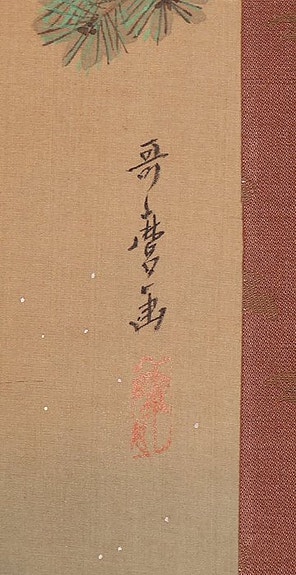 哥麿画